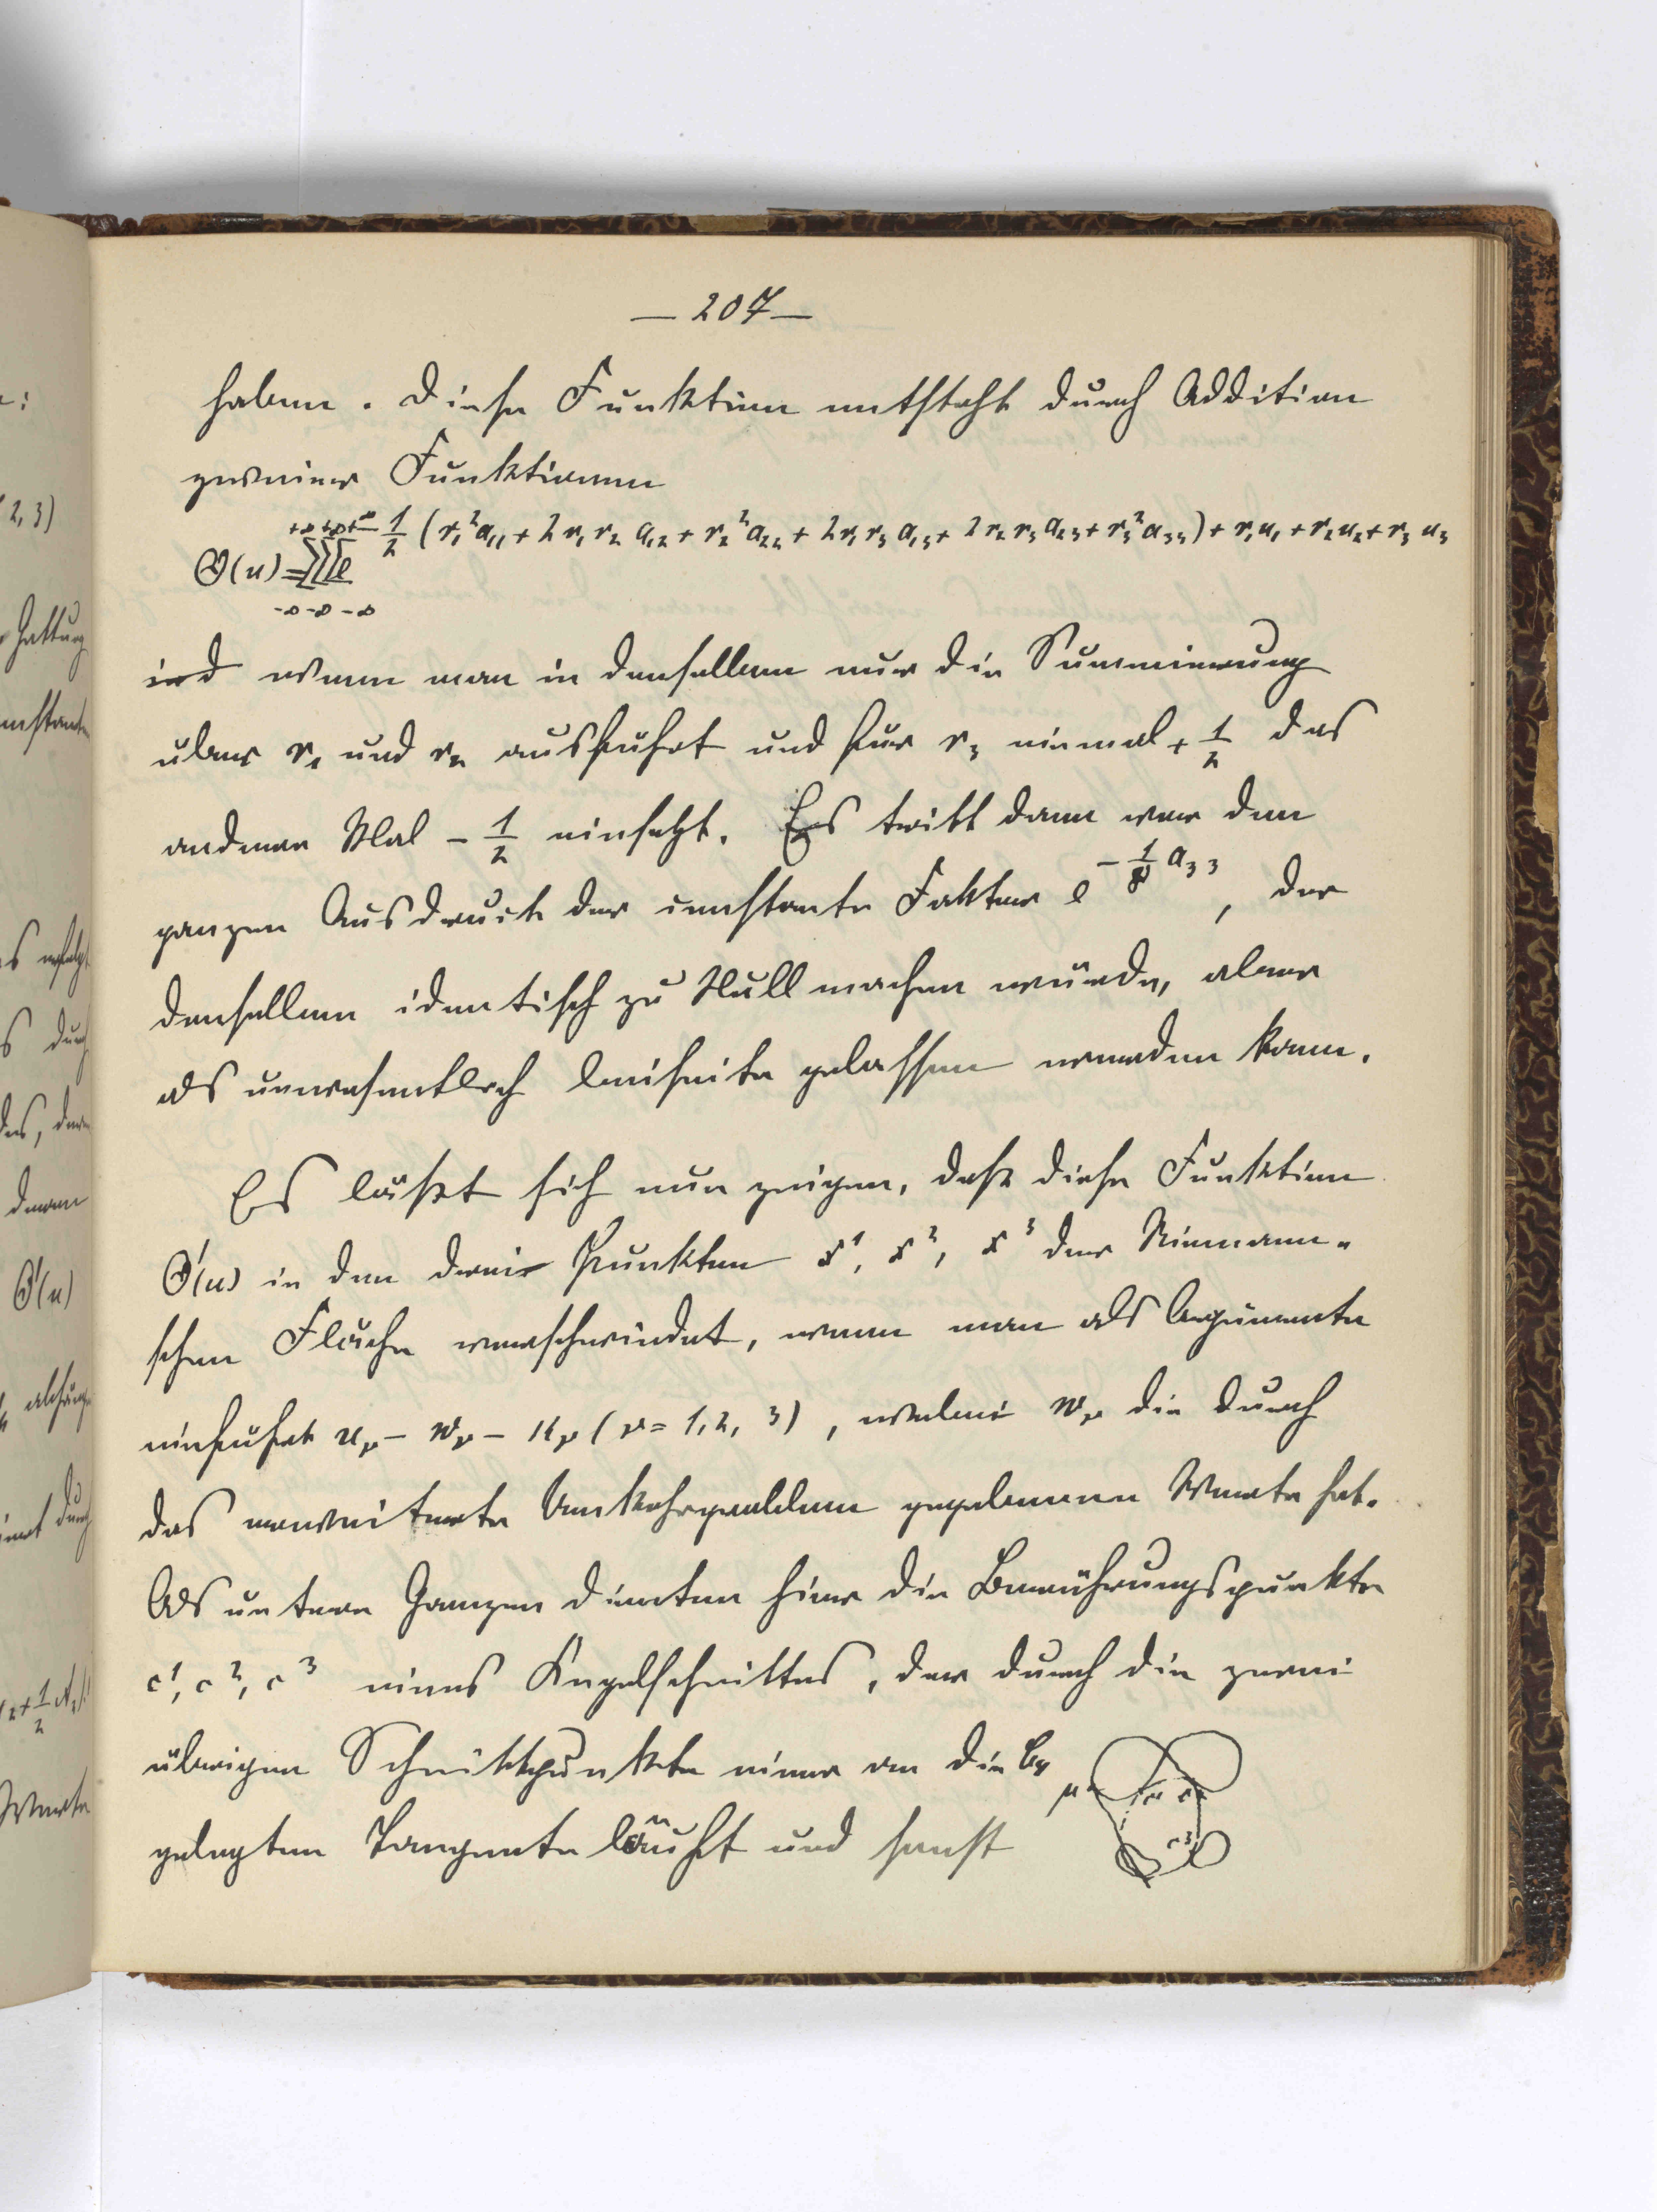 — 207 —
haben. Diese Funktion entsteht durch Addition
zweier Funktionen
Θ(u) = ΣΣΣ e^{-1/2 (r₁²a₁₁ + 2r₁r₂a₁₂ + r₂²a₂₂ + 2r₁r₃a₁₃ + 2r₂r₃a₂₃ + r₃²a₃₃) + r₁u₁ + r₂u₂ + r₃u₃}
+∞ +∞ +∞
-∞ -∞ -∞
wenn man in denselben nur die Summierung
über r₁ und r₂ ausführt und für r₃ einmal + 1/2 das
andere Mal - 1/2 einsetzt. Es tritt dann vor den
ganzen Ausdruck der constante Faktor e^{-1/8 a₃₃}, der
denselben identisch zu Null machen würde, aber
als unwesentlich beiseite gelassen werden kann.
Es läßt sich nun zeigen, daß diese Funktion
Θ'(u) in den drei Punkten x¹, x², x³ der Riemann-
schen Fläche verschwindet, wenn man als Argumente
einführt u_ν - w_ν - K_ν (ν = 1, 2, 3), wobei w_ν die durch
das erweiterte Umkehrproblem gegebenen Werte hat.
Als untere Grenzen dienten hier die Berührungspunkte
c¹, c², c³ eines Kegelschnittes, der durch die zwei
übrigen Schnittpunkte einer an die C₄
gelegten Tangente läuft und sonst
μ
c³